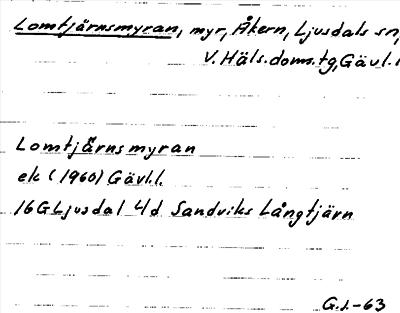 Lomtjärnsmyran, myr, Åkern, Ljusdals sn,
V. Häls. doms.tg, Gävl.l
Lomtjärnsmyran
ek (1960) Gävl.l.
16G Ljusdal 4/d Sandviks Långtjärn
G.J.-63